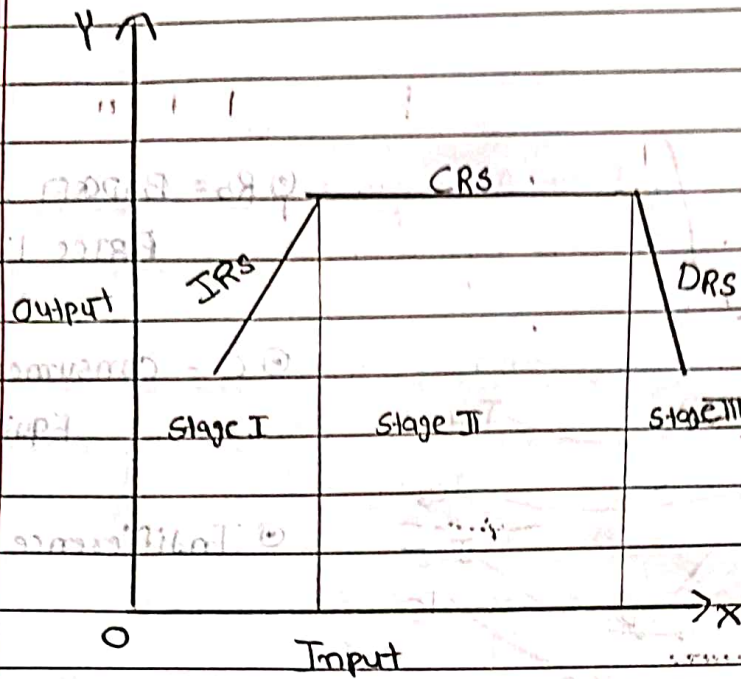 Y
CRS
IRS
DRS
Output
Stage I
Stage II
Stage III
O
X
Input